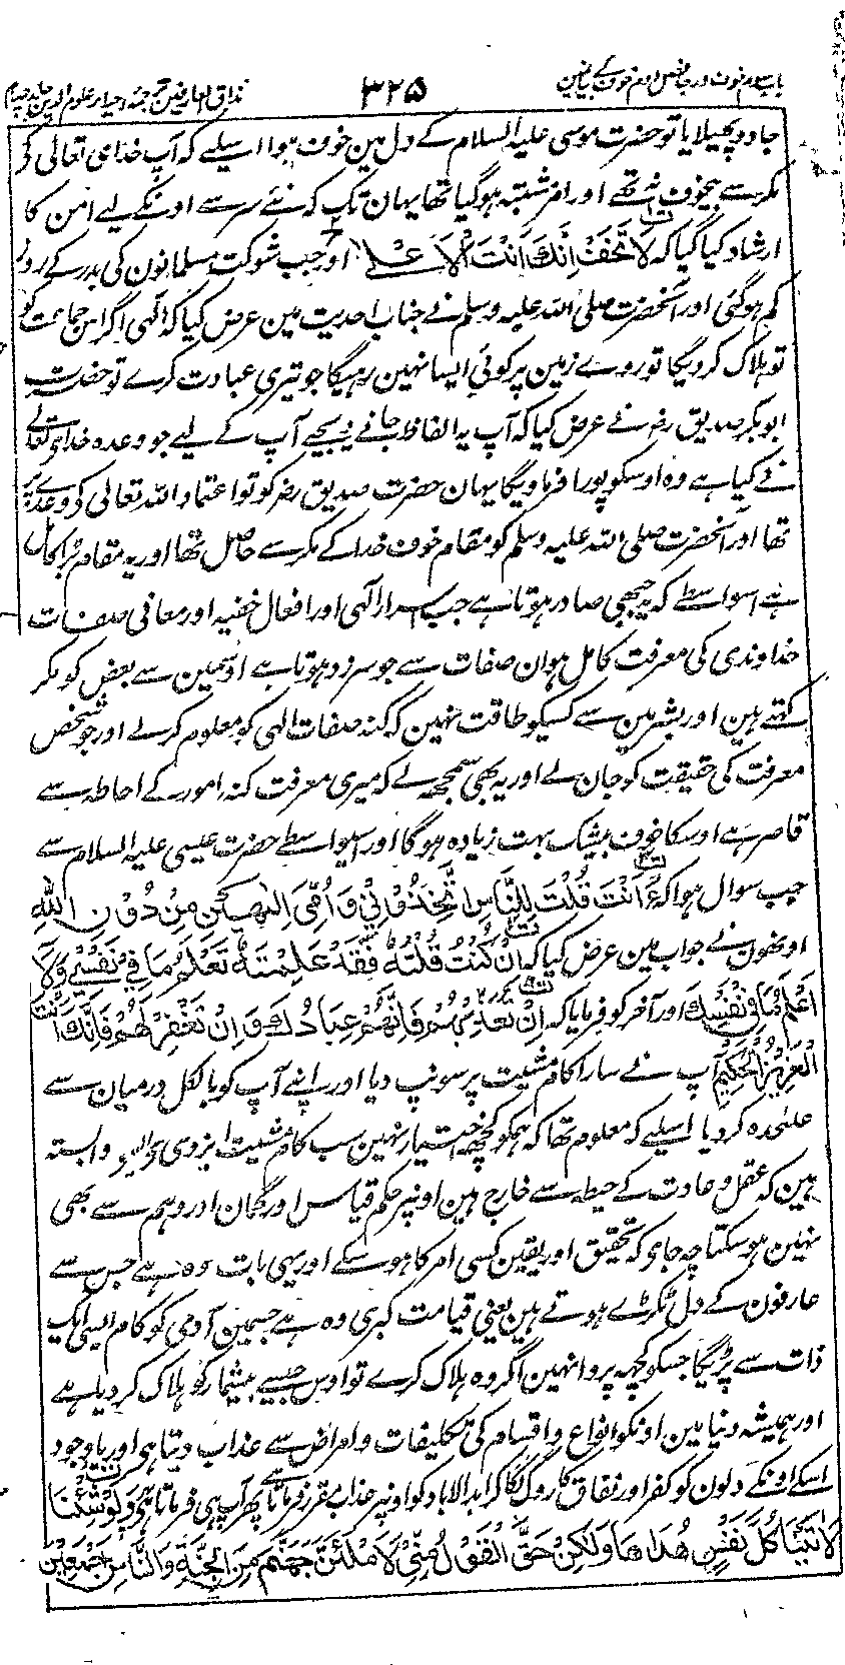 باب سوم خوف ورجا فصل دوم خوف کے بیان مین
۳۲۵
مذاق العارفین ترجمہ احیاء علوم الدین جلد چہارم
جادو پھیلایا تو حضرت موسی علیہ السلام کے دل مین خوف ہوا اسلیے کہ آپ خداے تعالی کے
مکر سے بیخوف نہ تھے اور امر مشتبہ ہوگیا تھا یہان تک کہ نئے سر سے اونکے لیے امن کا
ارشاد کیا گیا کہ لَا تَخَفْ اِنَّكَ اَنْتَ الْاَعْلٰى اور جب شوکت مسلمانون کی بدر کے روز
کم ہوگئی اور آنحضرت صلی اللہ علیہ وسلم نے جناب احدیت مین عرض کیا کہ الٰہی اگر اس جماعت کو
تو ہلاک کردیگا تو روے زمین پر کوئی ایسا نہین رہیگا جو تیری عبادت کرے تو حضرت
ابوبکر صدیق رضہ نے عرض کیا کہ آپ یہ الفاظ جانے دیجیے آپ کے لیے جو وعدہ خداے تعالے
نے کیا ہے وہ اوسکو پورا فرماویگا یہان حضرت صدیق رضہ کو تو اعتماد اللہ تعالی کے وعدے پر
تھا اور آنحضرت صلی اللہ علیہ وسلم کو مقام خوف خدا کے مکر سے حاصل تھا اور یہ مقام بڑا کامل
ہے اسواسطے کہ یہ جبھی صادر ہوتا ہے جب اسرار الٰہی اور افعال خفیہ اور معانی صفات
خداوندی کی معرفت کامل ہو ان صفات سے جو سرزد ہوتا ہے اوسمین سے بعض کو مکر
کہتے ہین اور بشر مین سے کسیکو طاقت نہین کہ کنہ صفات الٰہی کو معلوم کرلے اور جو شخص
معرفت کی حقیقت کو جان لے اور یہ بھی سمجھ لے کہ میری معرفت کنہ امور کے احاطہ سے
قاصر ہے اوسکا خوف بیشک بہت زیادہ ہوگا اور اسیواسطے حضرت عیسی علیہ السلام سے
جب سوال ہوا کہ ءَاَنْتَ قُلْتَ لِلنَّاسِ اتَّخِذُوْنِيْ وَاُمِّيَ اِلٰهَيْنِ مِنْ دُوْنِ اللّٰهِ
اونھون نے جواب مین عرض کیا کہ اِنْ كُنْتُ قُلْتُهٗ فَقَدْ عَلِمْتَهٗ تَعْلَمُ مَا فِيْ نَفْسِيْ وَلَا
اَعْلَمُ مَا فِيْ نَفْسِكَ اور آخر کو فرمایا کہ اِنْ تُعَذِّبْهُمْ فَاِنَّهُمْ عِبَادُكَ وَاِنْ تَغْفِرْ لَهُمْ فَاِنَّكَ اَنْتَ
الْعَزِيْزُ الْحَكِيْمُ آپ نے سارا کام مشیت پر سونپ دیا اور اپنے آپ کو بالکل درمیان سے
علیحدہ کردیا اسلیے کہ معلوم تھا کہ ہمکو کچھ اختیار نہین سب کام مشیت ایزدی سے وابستہ
ہین کہ عقل و عادت کے حیطہ سے خارج ہین اونپر حکم قیاس اور گمان اور وہم سے بھی
نہین ہوسکتا چہ جاے کہ تحقیق اور یقین کسی امر کا ہوسکے اور یہی بات وہ ہے جس سے
عارفون کے دل ٹکڑے ہوتے ہین یعنی قیامت کبری وہ ہے جسمین آدمی کو کام ایسی ایک
ذات سے پڑیگا جسکو کچھ پروا نہین اگر وہ ہلاک کرے تو اوس جیسے بیشمار کو ہلاک کردیا ہے
اور ہمیشہ دنیا مین اونکو انواع واقسام کی تکلیفات وامراض سے عذاب دیتا ہے اور باوجود
اسکے اونکے دلون کو کفر اور نفاق کا روگ لگا کر ابد الاباد کو اونپر عذاب مقرر فرماتا ہے پھر آپ ہی فرماتا ہے وَلَوْ شِئْنَا
لَاٰتَيْنَا كُلَّ نَفْسٍ هُدٰىهَا وَلٰكِنْ حَقَّ الْقَوْلُ مِنِّيْ لَاَمْلَئَنَّ جَهَنَّمَ مِنَ الْجِنَّةِ وَالنَّاسِ اَجْمَعِيْنَ